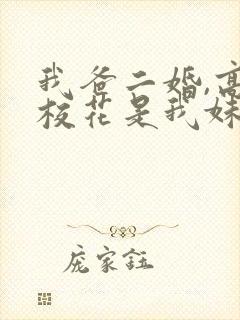 我爸二婚,高
校花是我妹
庞家钰